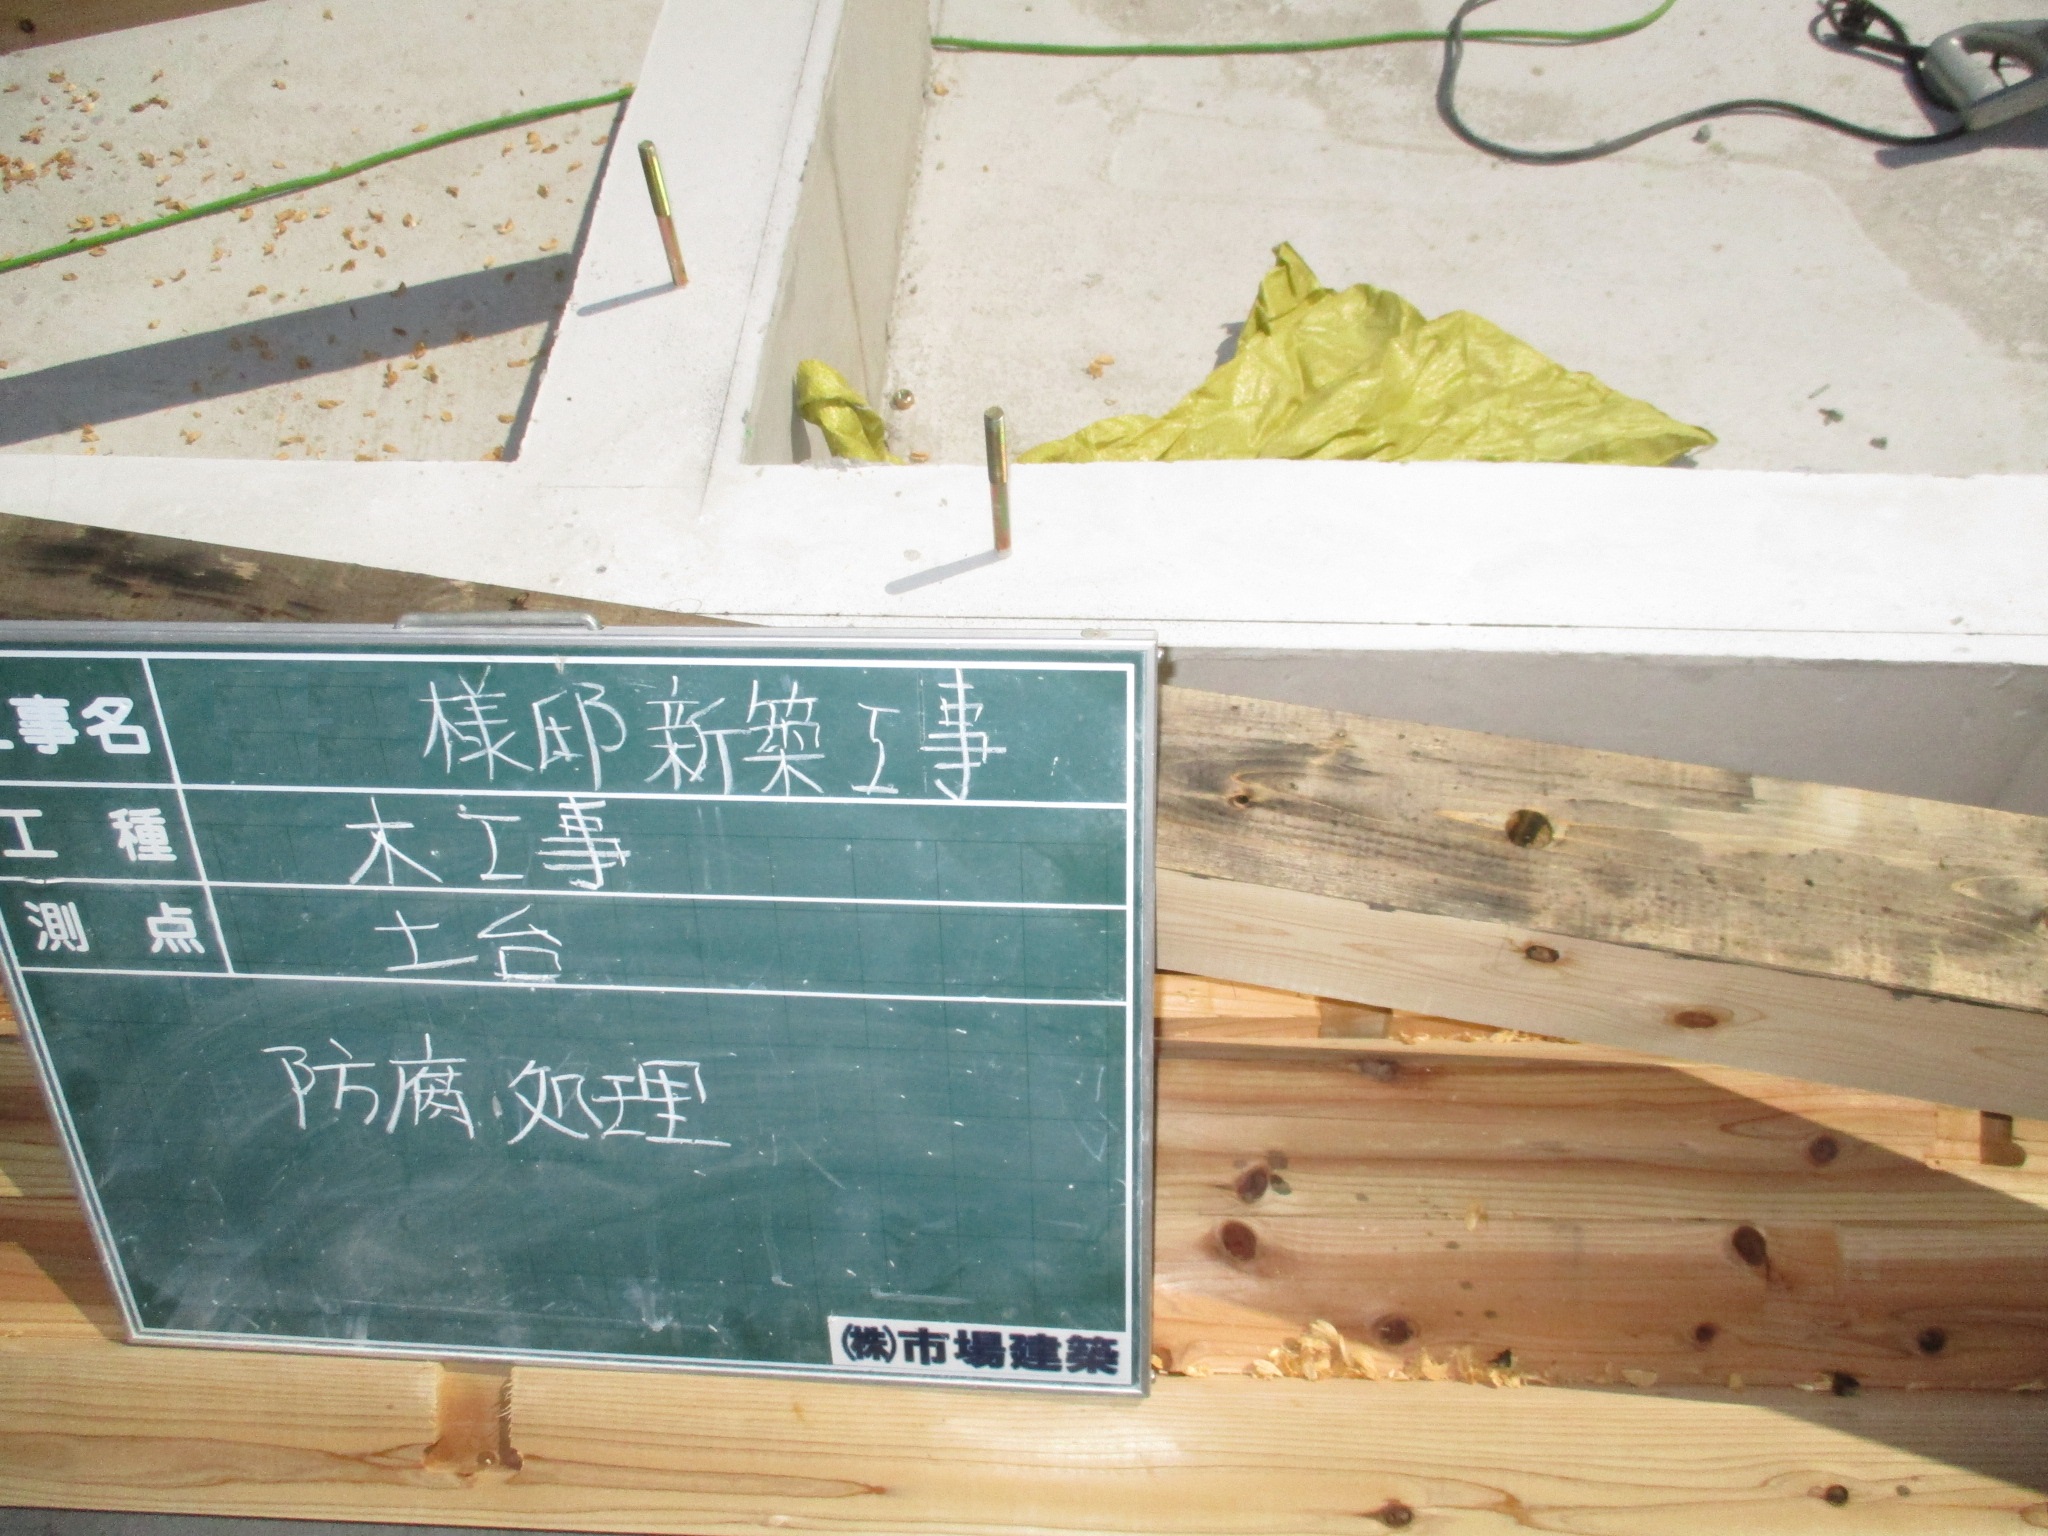 工事名 様邸新築工事
工種 木工事
測点 土台
防腐処理
(株)市場建築